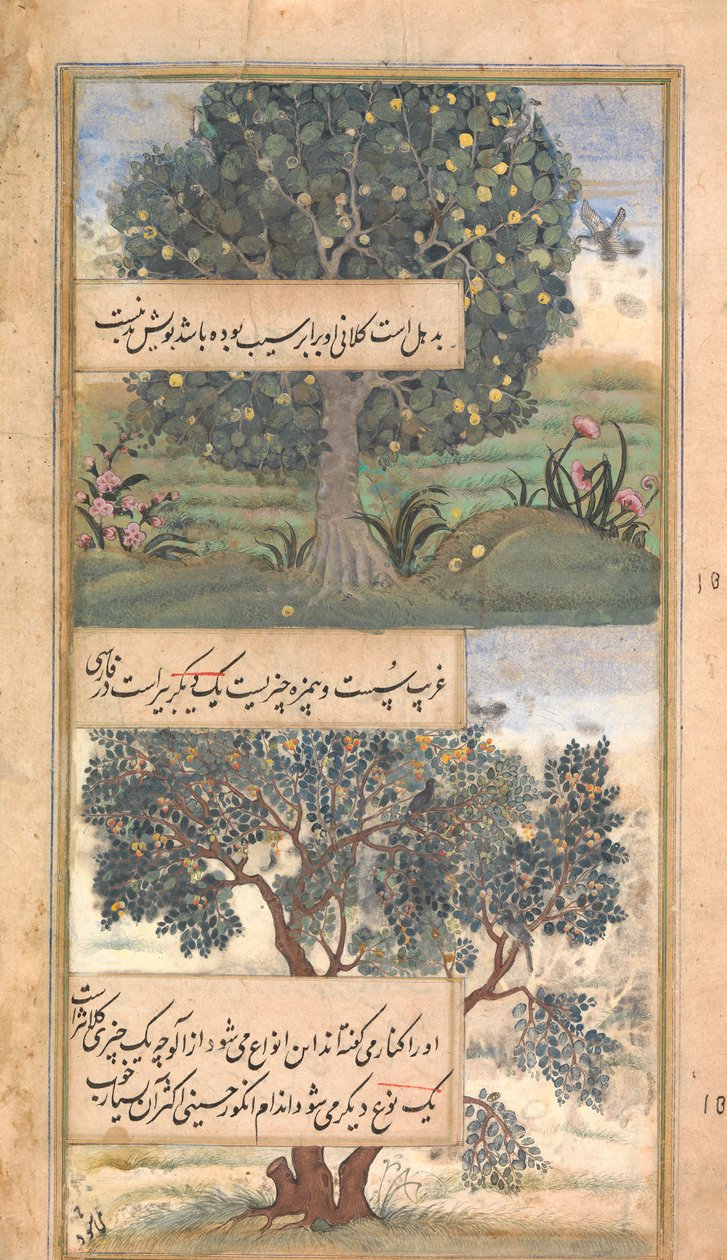 بد هل است کلانی او برابر سیب بوده باشد بویش بد نیست
غریب پُست و بیمزه چیزیست یک دیگر بیر است در فارسی
او را کنار می گفته اند این انواع می شود از آلوچه یک چیزی کلانتر است
یک نوع دیگر می شود اندام انگور حسینی اکثر آن بسیار خوب